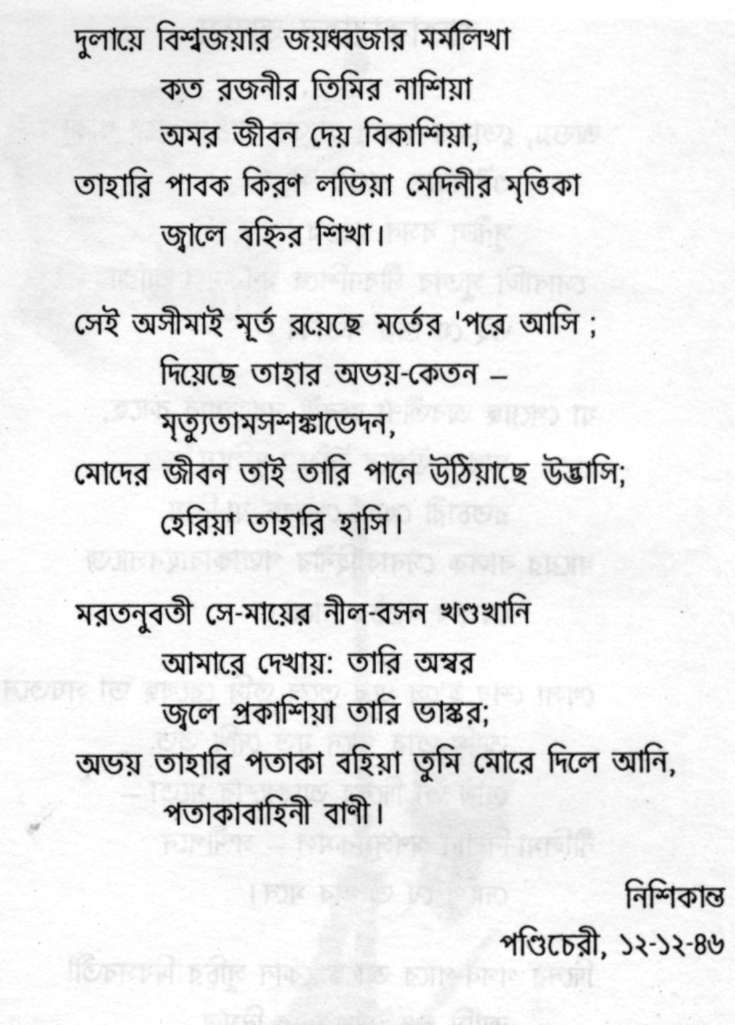 দুলায়ে বিশ্বজয়ার জয়ধ্বজার মর্মলিখা
কত রজনীর তিমির নাশিয়া
অমর জীবন দেয় বিকাশিয়া,
তাহারি পাবক কিরণ লভিয়া মেদিনীর মৃত্তিকা
জ্বালে বহ্নির শিখা।
সেই অসীমাই মূর্ত রয়েছে মর্তের 'পরে আসি ;
দিয়েছে তাহার অভয়-কেতন –
মৃত্যুতামসশঙ্কাভেদন,
মোদের জীবন তাই তারি পানে উঠিয়াছে উদ্ভাসি;
হেরিয়া তাহারি হাসি।
মরতনুবতী সে-মায়ের নীল-বসন খণ্ডখানি
আমারে দেখায়: তারি অম্বর
জ্বলে প্রকাশিয়া তারি ভাস্কর;
অভয় তাহারি পতাকা বহিয়া তুমি মোরে দিলে আনি,
পতাকাবাহিনী বাণী।
নিশিকান্ত
পণ্ডিচেরী, ১২-১২-৪৬